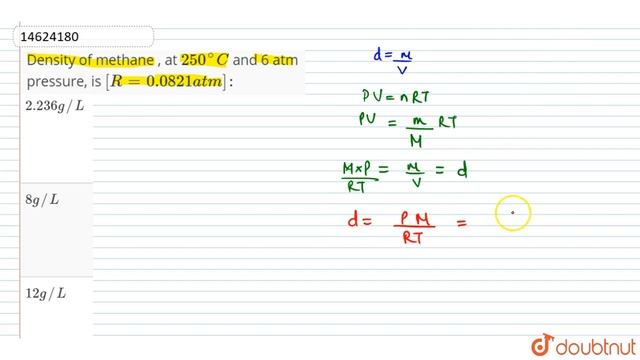 14624180
Density of methane , at 250°C and 6 atm
pressure, is [R = 0.0821atm] :
2.236g/L
8g/L
12g/L
d = m/V
PV = nRT
PV = m/M RT
M×P/RT = m/V = d
d = PM/RT =
doubtnut